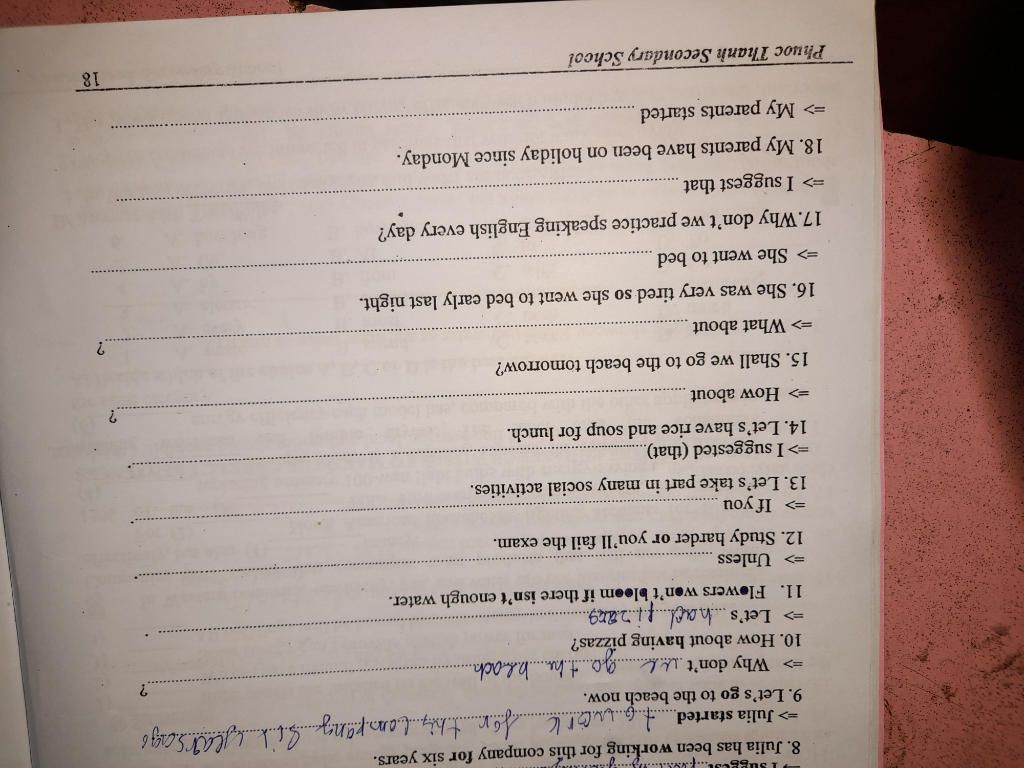 => I suggest
8. Julia has been working for this company for six years.
=> Julia started to work for this company six years ago
9. Let's go to the beach now.
=> Why don't we go the beach ?
10. How about having pizzas?
=> Let's had .
11. Flowers won't bloom if there isn't enough water.
=> Unless .
12. Study harder or you'll fail the exam.
=> If you .
13. Let's take part in many social activities.
=> I suggested (that) .
14. Let's have rice and soup for lunch.
=> How about ?
15. Shall we go to the beach tomorrow?
=> What about ?
16. She was very tired so she went to bed early last night.
=> She went to bed
17.Why don't we practice speaking English every day?
=> I suggest that
18. My parents have been on holiday since Monday.
=> My parents started
Phuoc Thanh Secondary School 18